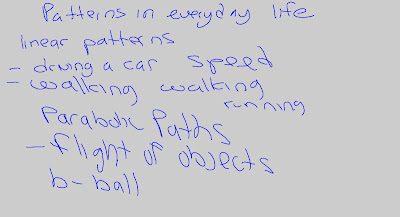 Patterns in everyday life
linear patterns
- driving a car speed
- walking walking
running
Parabolic Paths
- flight of objects
b-ball